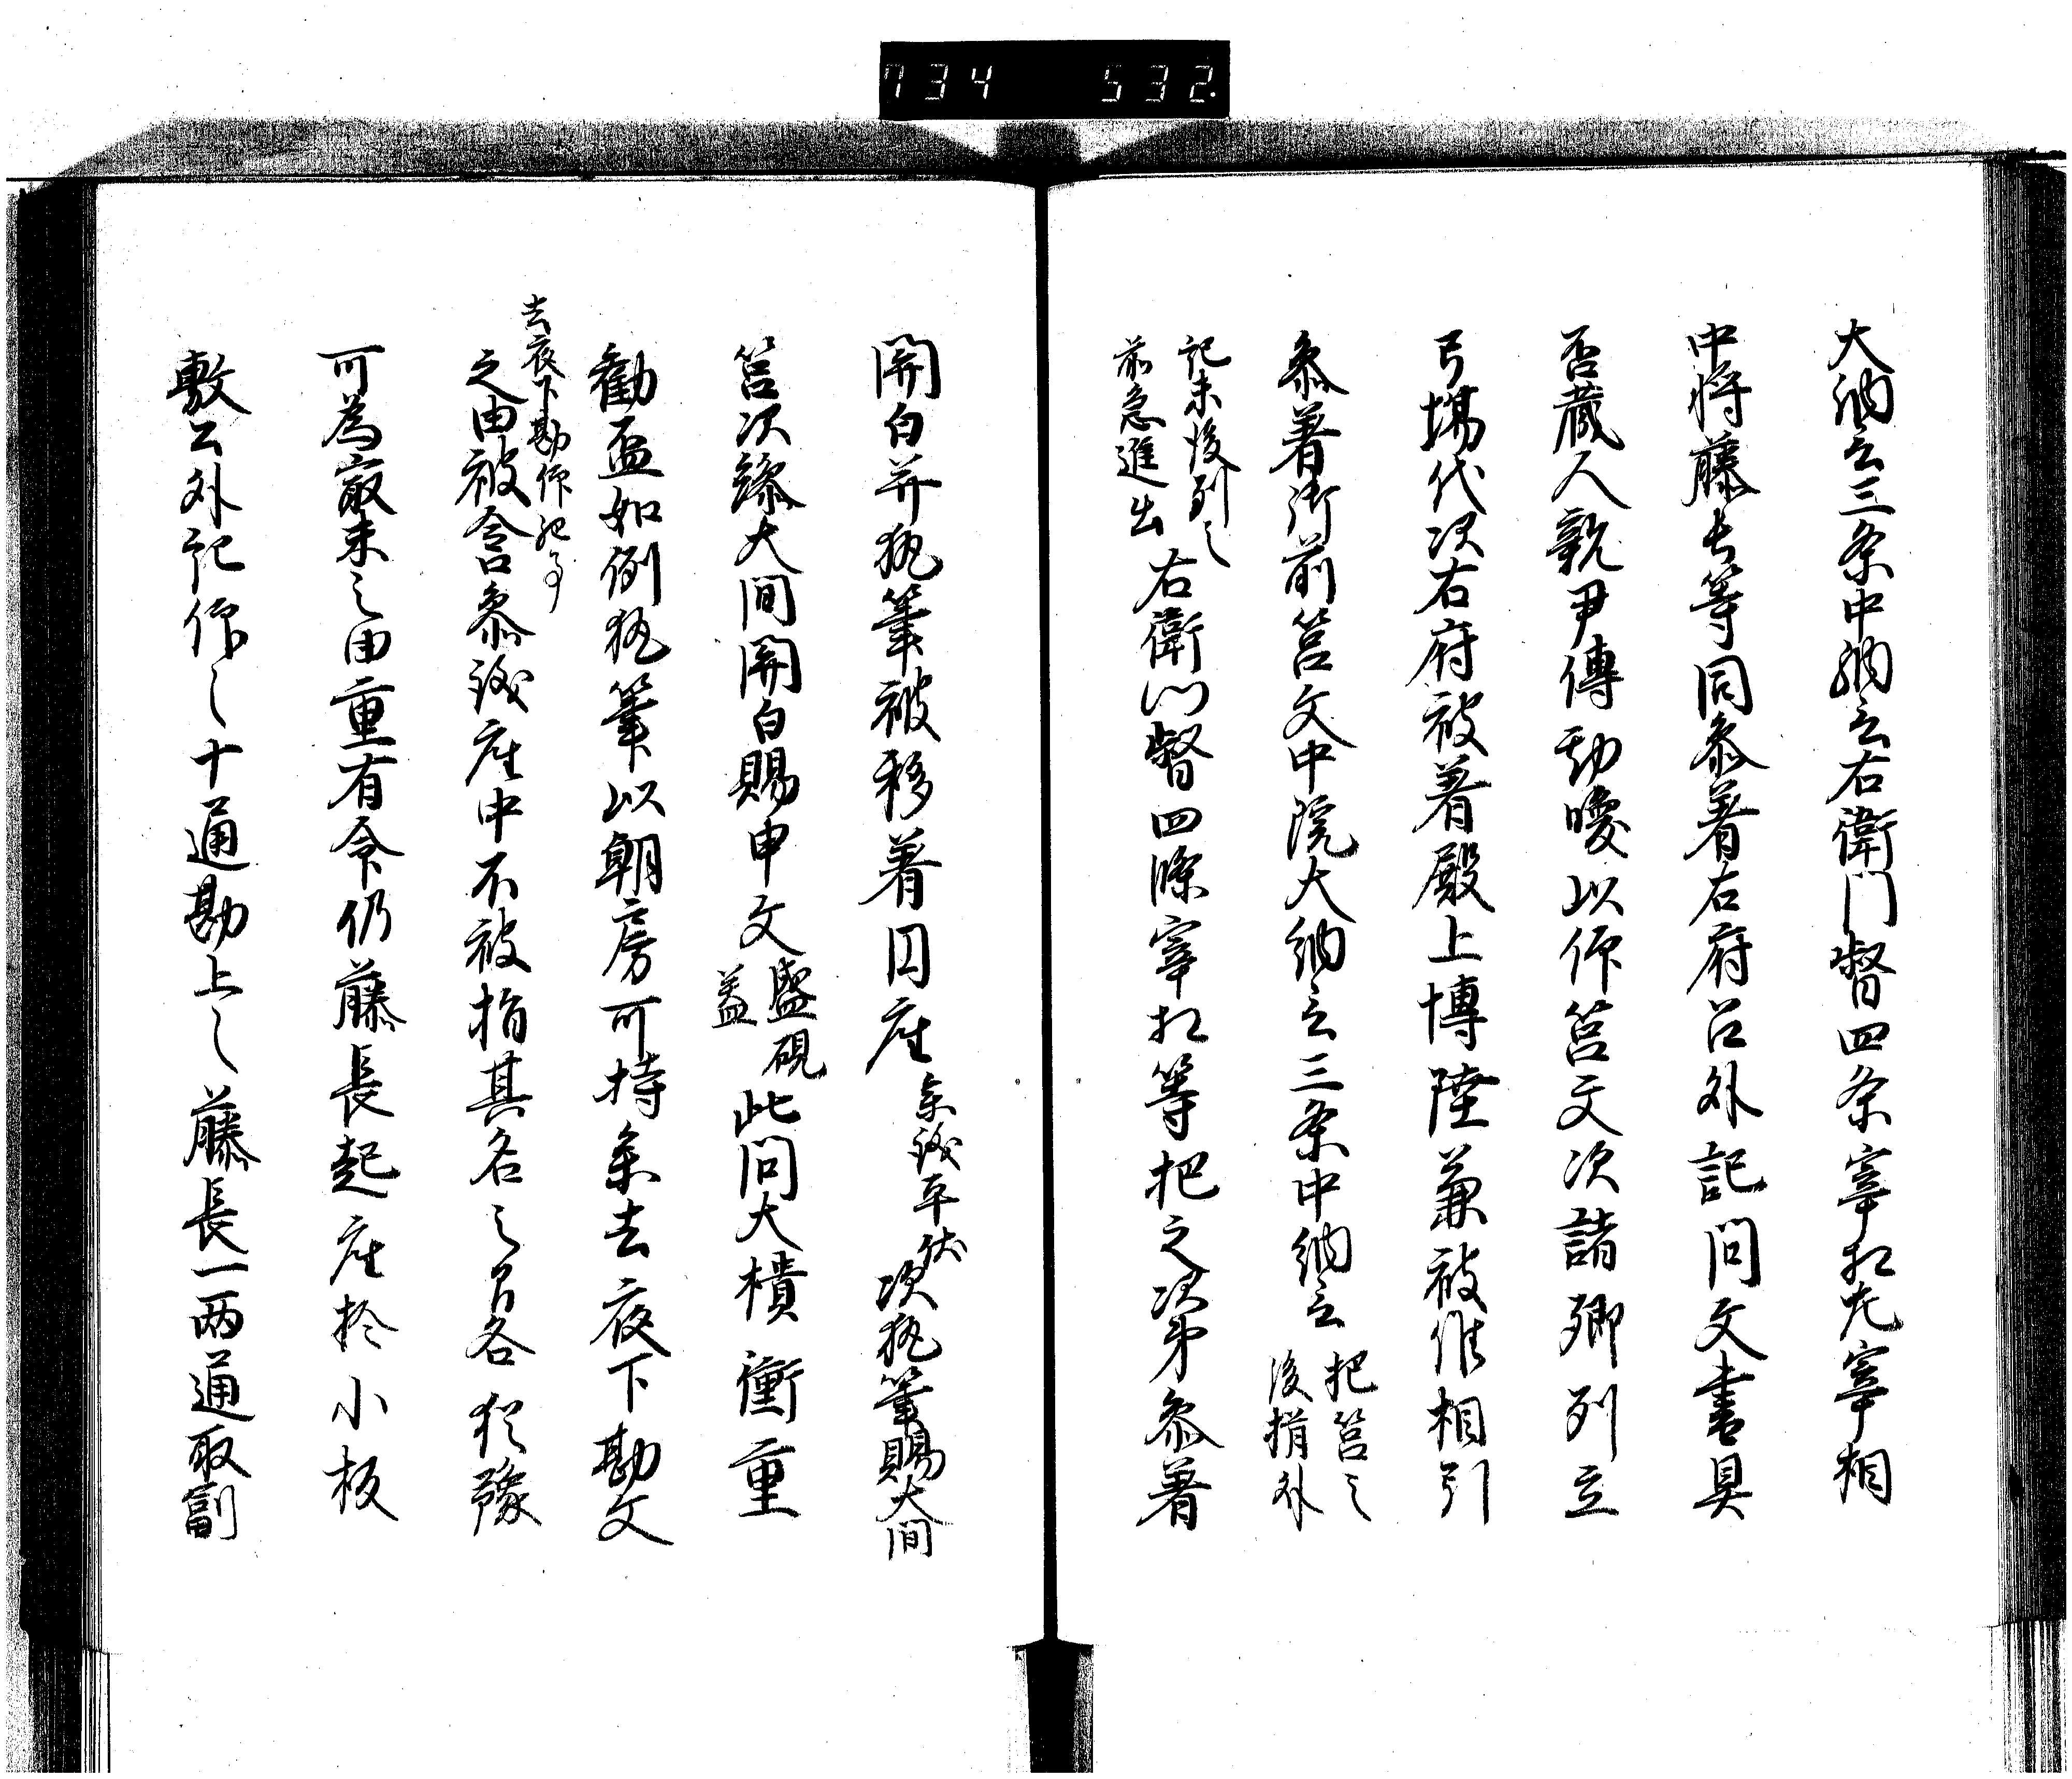 734 532
大納言三条中納言右衛門督四条宰相左宰相
中将藤長等同参著右府召外記問文書具
否蔵人親尹傳勧盃以仰筥文次諸卿列立
弓場代次右府被着殿上博陸兼被候相引
参着御前筥文中院大納言三条中納言把筥之後揖外
記未復列之前急進出右衛門督四條宰相等把之次第参着
関白并執筆被移着円座参議平伏次執筆賜大間
筥次繰大間関白賜申文盛硯蓋此間大樻衝重
勧盃如例執筆以朝房可持参去夜下勘文
去夜下勘仰詞事
之由被含参議座中不被指其名之間各猶豫
可為最末之由重有命仍藤長起座於小板
敷召外記仰之十通勘上之藤長一両通取副